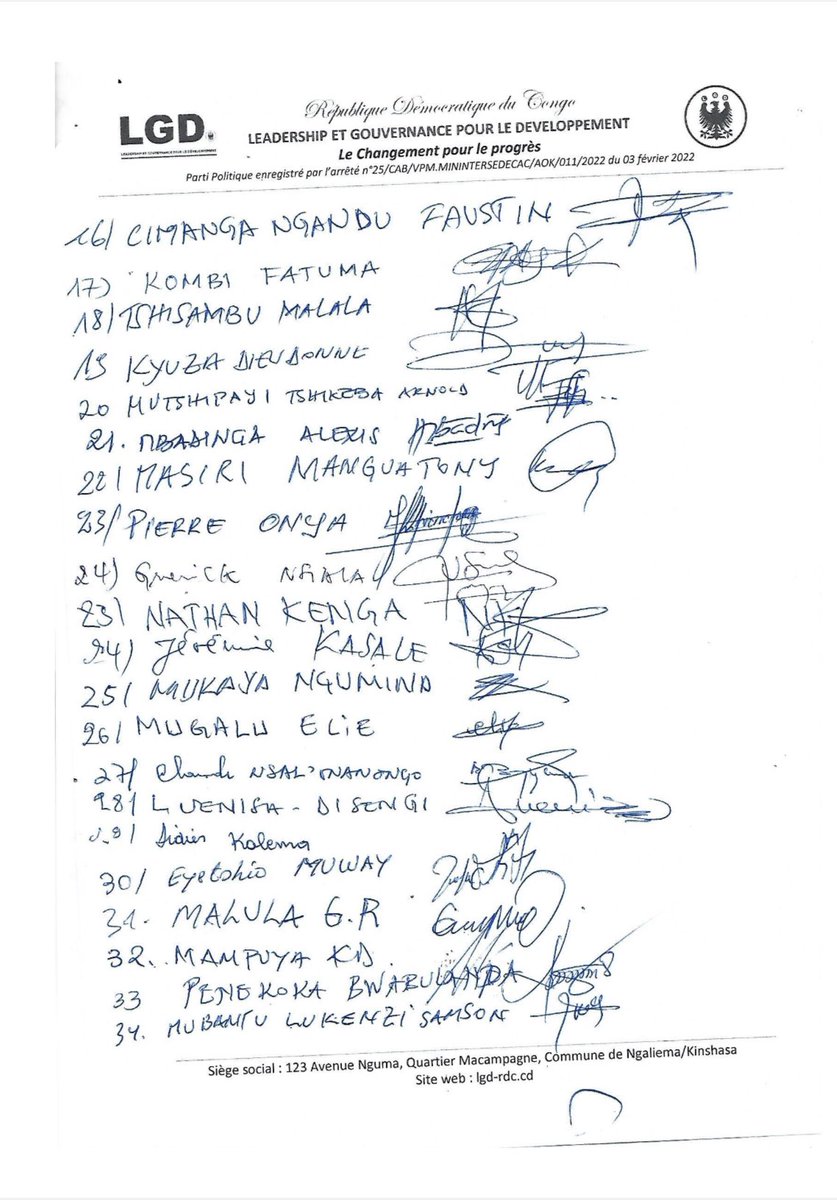 République Démocratique du Congo
LGD.
LEADERSHIP ET GOUVERNANCE POUR LE DEVELOPPEMENT
LEADERSHIP ET GOUVERNANCE POUR LE DEVELOPPEMENT
Le Changement pour le progrès
Parti Politique enregistré par l'arrêté n°25/CAB/VPM.MININTERSEDECAC/AOK/011/2022 du 03 février 2022
16/ CIMANGA NGANDU FAUSTIN
17) KOMBI FATUMA
18/ TSHISAMBU MALALA
19 KYUZA DIEUDONNE
20 MUTSHIPAYI TSHIKEBA ARNOLD
21. MBADINGA ALEXIS
22/ MASIRI MANGUATONY
23/ PIERRE ONYA
24) Guerick NGALA
23/ NATHAN KENGA
24) Jérémie KASALE
25/ MUKAYA NGUMIND
26/ MUGALU ELIE
27/ NSAL'ONANONGO
28/ LUENISA - DISENGI
Didier Kalema
30/ Eyetshio MUWAY
31. MALULA G.R
32. MAMPUYA KD.
33 PENEKOKA BWABULANDA
34. MUBANTU LUKENZI SAMSON
Siège social : 123 Avenue Nguma, Quartier Macampagne, Commune de Ngaliema/Kinshasa
Site web : lgd-rdc.cd